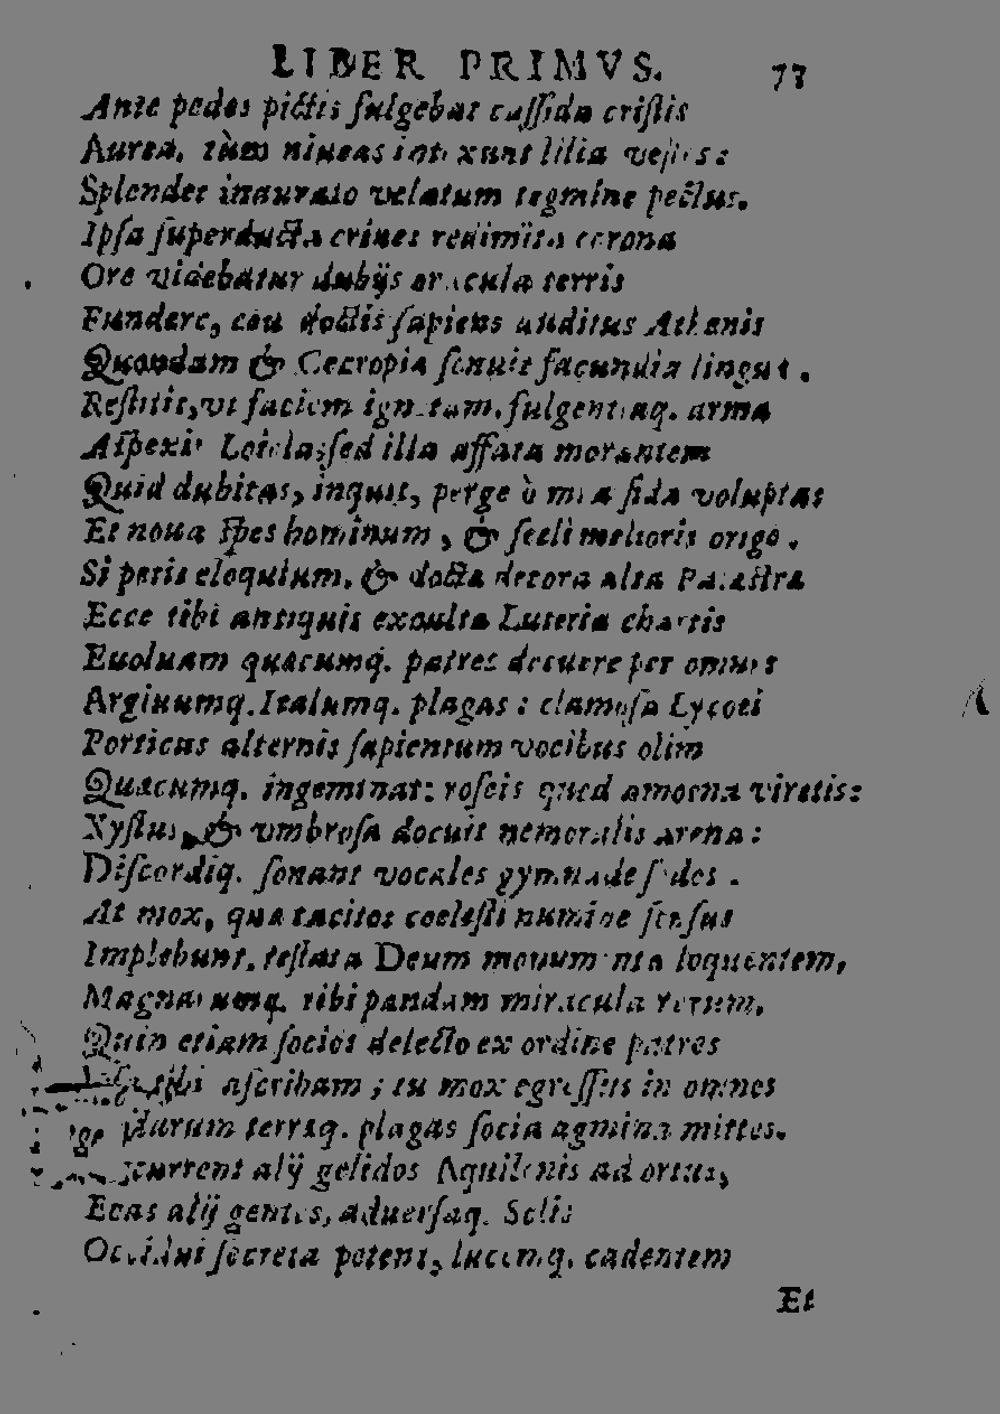 LIBER PRIMVS. 73
Ante pedes pictis fulgebat cassida cristis
Aurea, tùm niueas intexunt lilia vestes:
Splendet inaurato velatum tegmine pectus.
Ipsa superducta crines redimita corona
Ore videbatur dubijs oracula terris
Fundere, ceu doctis sapiens auditus Athenis
Quondam & Cecropia sonuit facundia lingua.
Restitit, vt faciem ignotam, fulgentiaq. arma
Aspexit Loiola; sed illa affata morantem
Quid dubitas, inquit, perge ò mea fida voluptas
Et noua spes hominum, & secli melioris origo.
Si petis eloquium, & docta decora alta Palæstra
Ecce tibi antiquis exculta Lutetia chartis
Euoluam quacumq. patres docuere per omnes
Argiuumq. Italumq. plagas: clamosa Lycoei
Porticus alternis sapientum vocibus olim
Quacumq. ingeminat: roseis quod amoena viretis:
Xystus, & vmbrosa docuit nemoralis arena:
Discordiq. sonant vocales gymnade sides.
At mox, qua tacitos coelesti numine sensus
Implebunt, testata Deum monumenta loquentem,
Magnarumq. tibi pandam miracula rerum,
Quin etiam socios delecto ex ordine patres
tibi ascribam; tu mox egressus in omnes
terraq. plagas socia agmina mittes.
current alij gelidos Aquilonis ad ortus,
Eoas alij gentes, aduersaq. Solis
Occidui secreta petent, lucemq. cadentem
Et